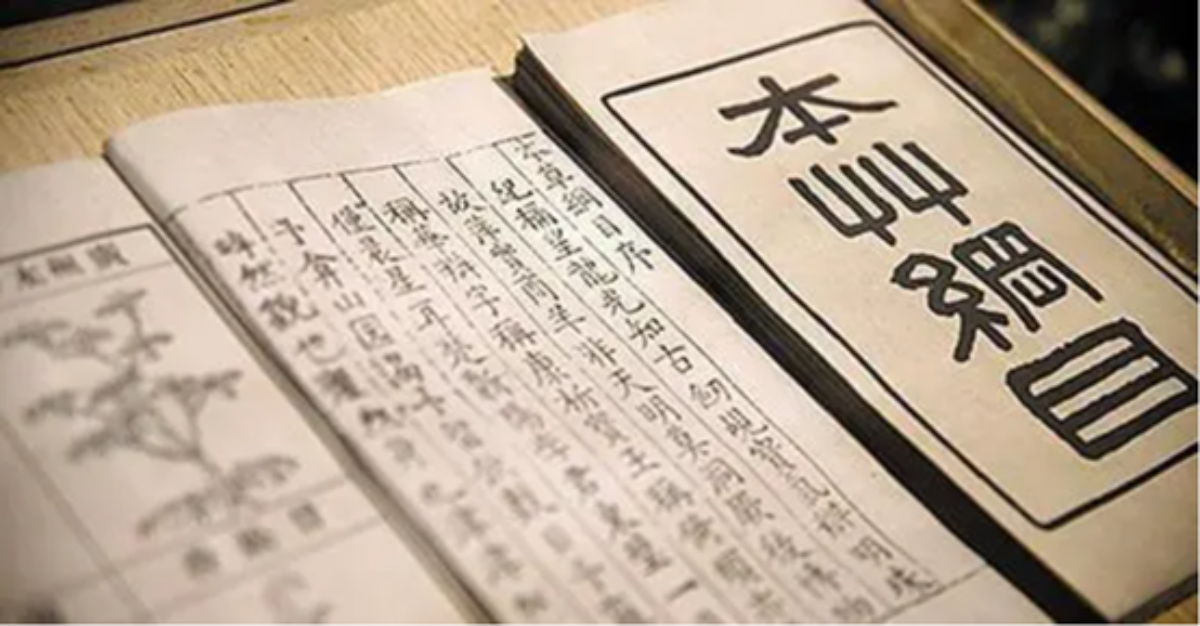 本艸綱目
本草綱目序
紀稱望龍光知古劍覘寶氣辨明珠
故萍實商羊非天明莫洞厥後博物
稱華辨字稱康析寶玉稱倚頓亦
僅晨星耳楚蘄陽李君東璧一
予弇山園謁予留飲數日予
睟然貌也癯然身也津津